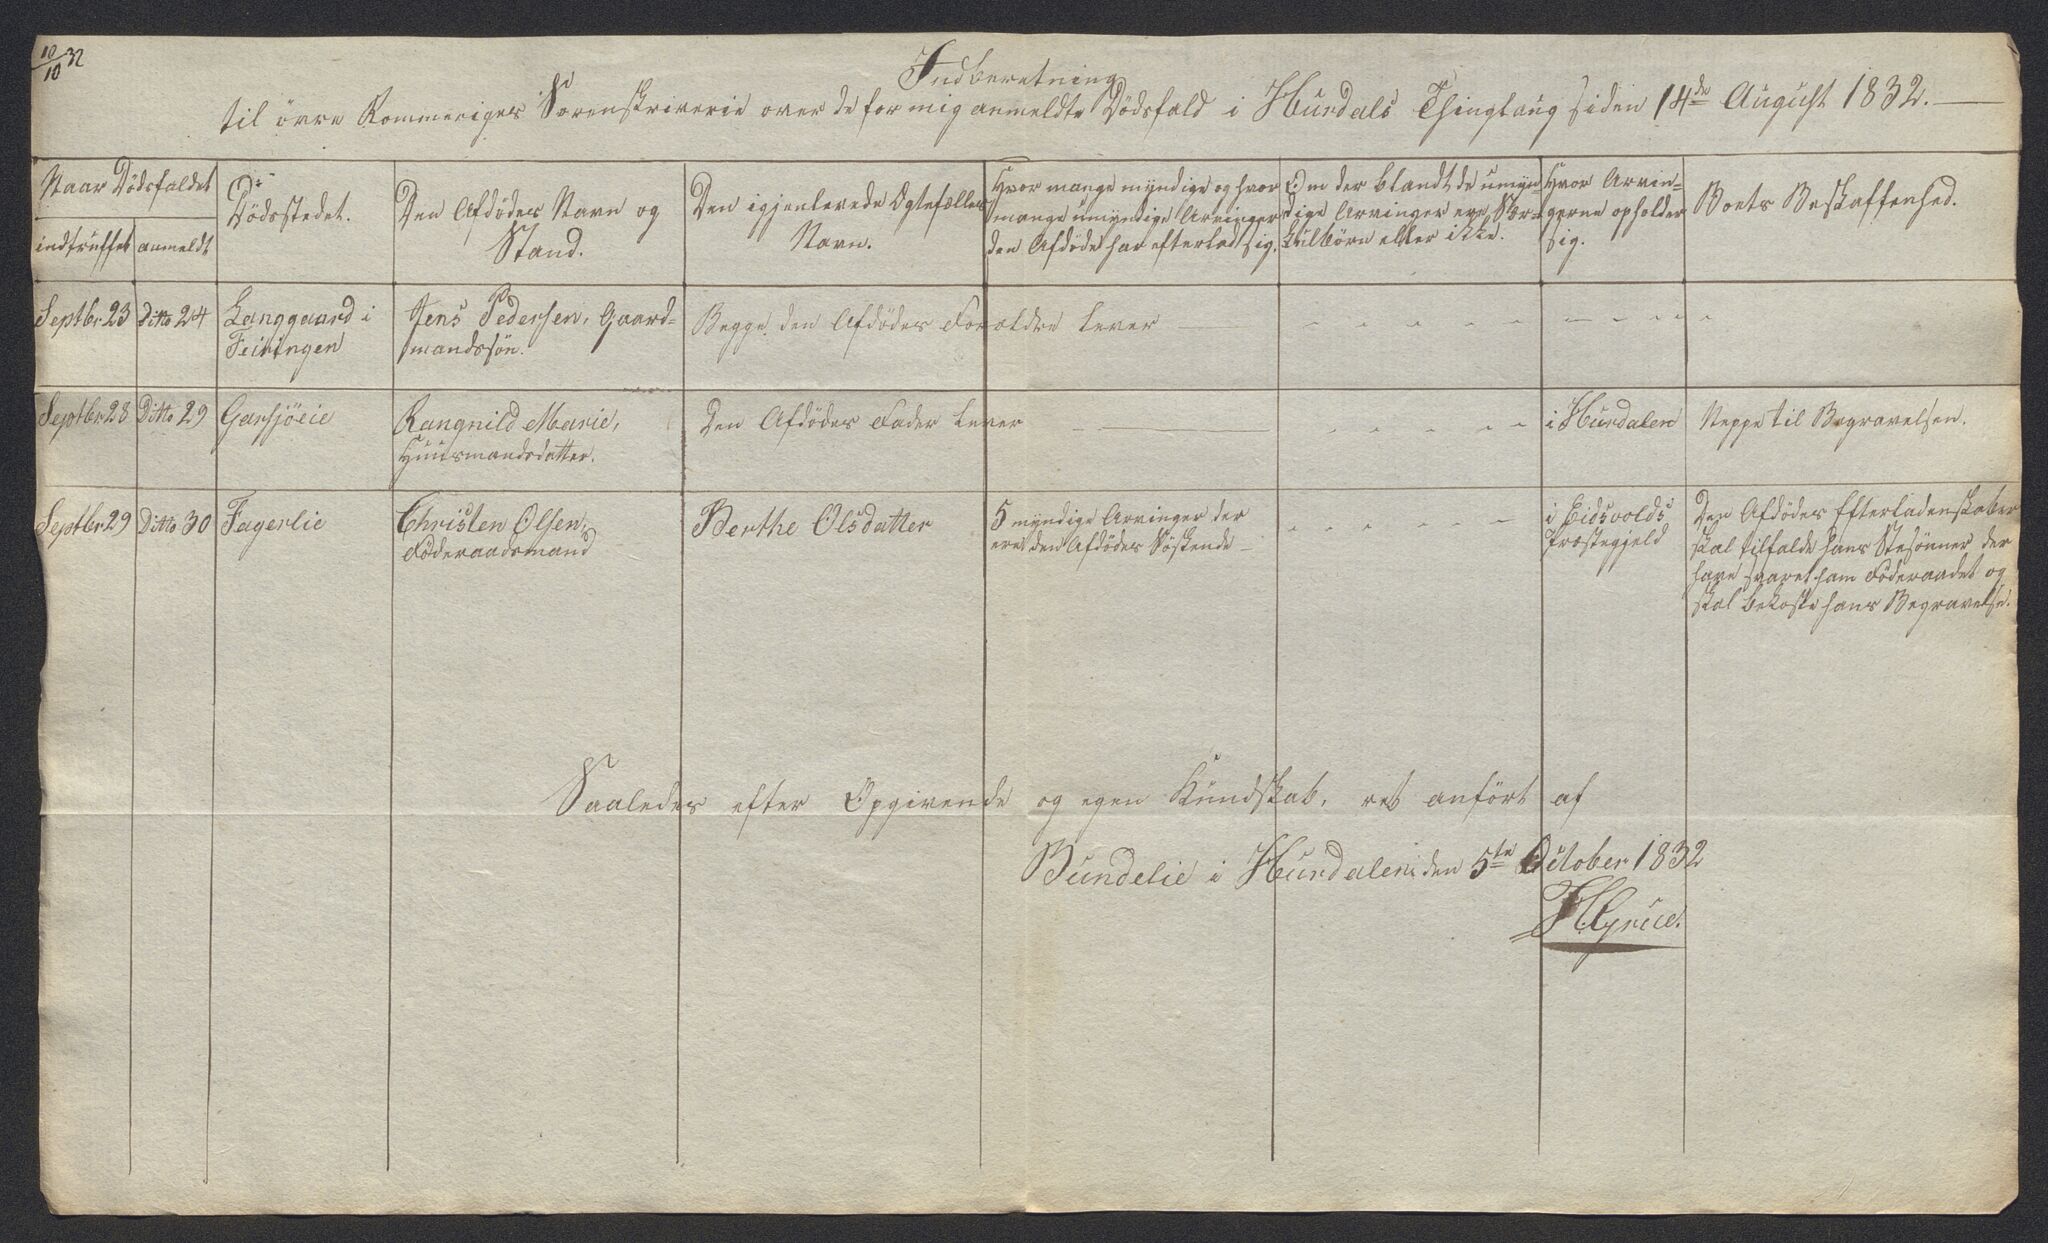 10/10 32
Indberetning
til övre Rommeriges Sorenskriverie over de for mig anmeldte Dödsfald i Hurdals Thinglaug siden 14de August 1832.
Naar Dödsfaldet
indtruffet
anmeldt
Dödsstedet.
Den Afdödes Navn og
Stand.
Den igjenlevede Ægtefælles
Navn.
Hvor mange myndige og hvor
mange umyndige Arvinger
den Afdöde har efterladt sig.
Om der blandt de umyn-
dige Arvinger ere Sær-
kulbörn eller ikke.
Hvor Arvin-
gerne opholder
sig.
Boets Beskaffenhed.
Septbr 23
Ditto 24
Langgaard i
Feiringen
Jens Pedersen, Gaard-
mandssön.
Begge den Afdödes Forældre lever
Septbr 28
Ditto 29
Garsjöeie
Rangnild Marie,
Huusmandsdatter.
Den Afdödes Fader lever
i Hurdalen
Neppe til Begravelsen.
Septbr 29
Ditto 30
Fagerlie
Christen Olsen,
Föderaadsmand
Berthe Olsdatter
5 myndige Arvinger der
ere den Afdödes Söskende
i Eidsvolds
Præstegjeld
Den Afdödes Efterladenskaber
skal tilfalde hans Stesönner der
have svaret ham Föderaadet og
skal bekoste hans Begravelse.
Saaledes efter Opgivende og egen Kundskab, ret anfört af
Bundelie i Hurdalen den 5te October 1832